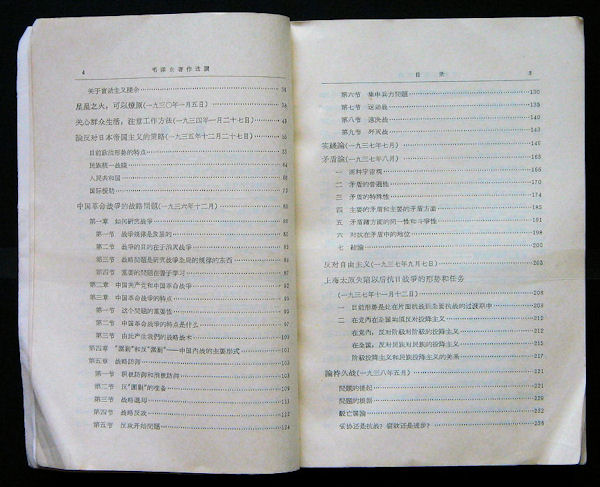 4 毛澤东著作选讀
关于盲动主义残余 34
星星之火，可以燎原（一九三〇年一月五日） 36
关心群众生活，注意工作方法（一九三四年一月二十七日）
論反对日本帝国主义的策略（一九三五年十二月二十七日）
目前政治形势的特点
民族統一战綫
人民共和国
国际援助
中国革命战爭的战略問題（一九三六年十二月）
第一章 如何研究战爭
第一节 战爭规律是发展的
第二节 战爭的目的在于消灭战爭
第三节 战略問題是研究战爭全局的规律的东西
第四节 重要的問題在善于学习
第二章 中国共产党和中国革命战爭
第三章 中国革命战爭的特点
第一节 这个問題的重要性
第二节 中国革命战爭的特点是什么
第三节 由此产生我們的战略战术
第四章 “圍剿”和反“圍剿”——中国内战的主要形式 101
第五章 战略防御
第一节 积极防御和消极防御
第二节 反“圍剿”的准备 109
第三节 战略退却
第四节 战略反攻
第五节 反攻开始問題 124
目录 5
第六节 集中兵力問題 130
第七节 运动战
第八节 速决战
第九节 歼灭战
实践論（一九三七年七月）
矛盾論（一九三七年八月） 165
一 两种宇宙观
二 矛盾的普遍性
三 矛盾的特殊性
四 主要的矛盾和主要的矛盾方面
五 矛盾諸方面的同一性和斗爭性
六 对抗在矛盾中的地位 198
七 結論 200
反对自由主义（一九三七年九月七日） 203
上海太原失陷以后抗日战爭的形势和任务
（一九三七年十一月十二日） 208
一 目前形势是处在片面抗战到全面抗战的过渡期中 208
二 在党内在全国均須反对投降主义
在党内，反对阶級对阶級的投降主义
在全国，反对民族对民族的投降主义
阶級投降主义和民族投降主义的关系
論持久战（一九三八年五月） 221
問題的提起 221
問題的根据 229
駁亡国論 232
妥协还是抗战？腐敗还是进步？ 236